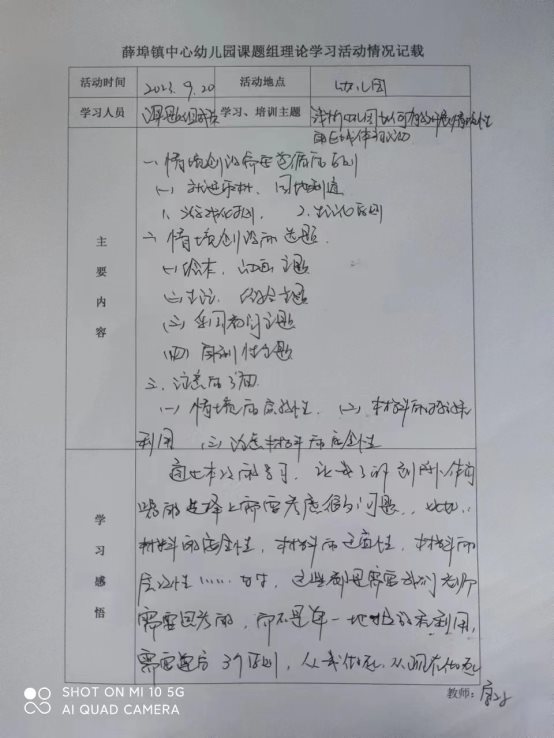 薛埠镇中心幼儿园课题组理论学习活动情况记载
活动时间 2023.9.20 活动地点 幼儿园
学习人员 课题组成员 学习、培训主题 浅析幼儿园如何有效开展情境性
区域体育活动
主要内容
一、情境创设需要遵循的原则
(一) 就地取材、因地制宜
1、游戏化原则 2、生活化原则
二、情境创设的选题
(一) 绘本、动画主题
(二) 生活、经验主题
(三) 主题
(四) 主题
三、注意的事项
(一) 情境的 性 (二) 材料的
利用 (三) 注意材料的安全性
学习感悟
通过本次的学习,让我了解到户外体育
的选择上需要考虑很多问题,比如:
材料的安全性,材料的适宜性,材料的
层次性……等等,这些都是需要我们老师
需要思考的,而不是单一地 利用,
需要遵守 原则,从我做起,从现在做起
教师:
SHOT ON MI 10 5G
AI QUAD CAMERA